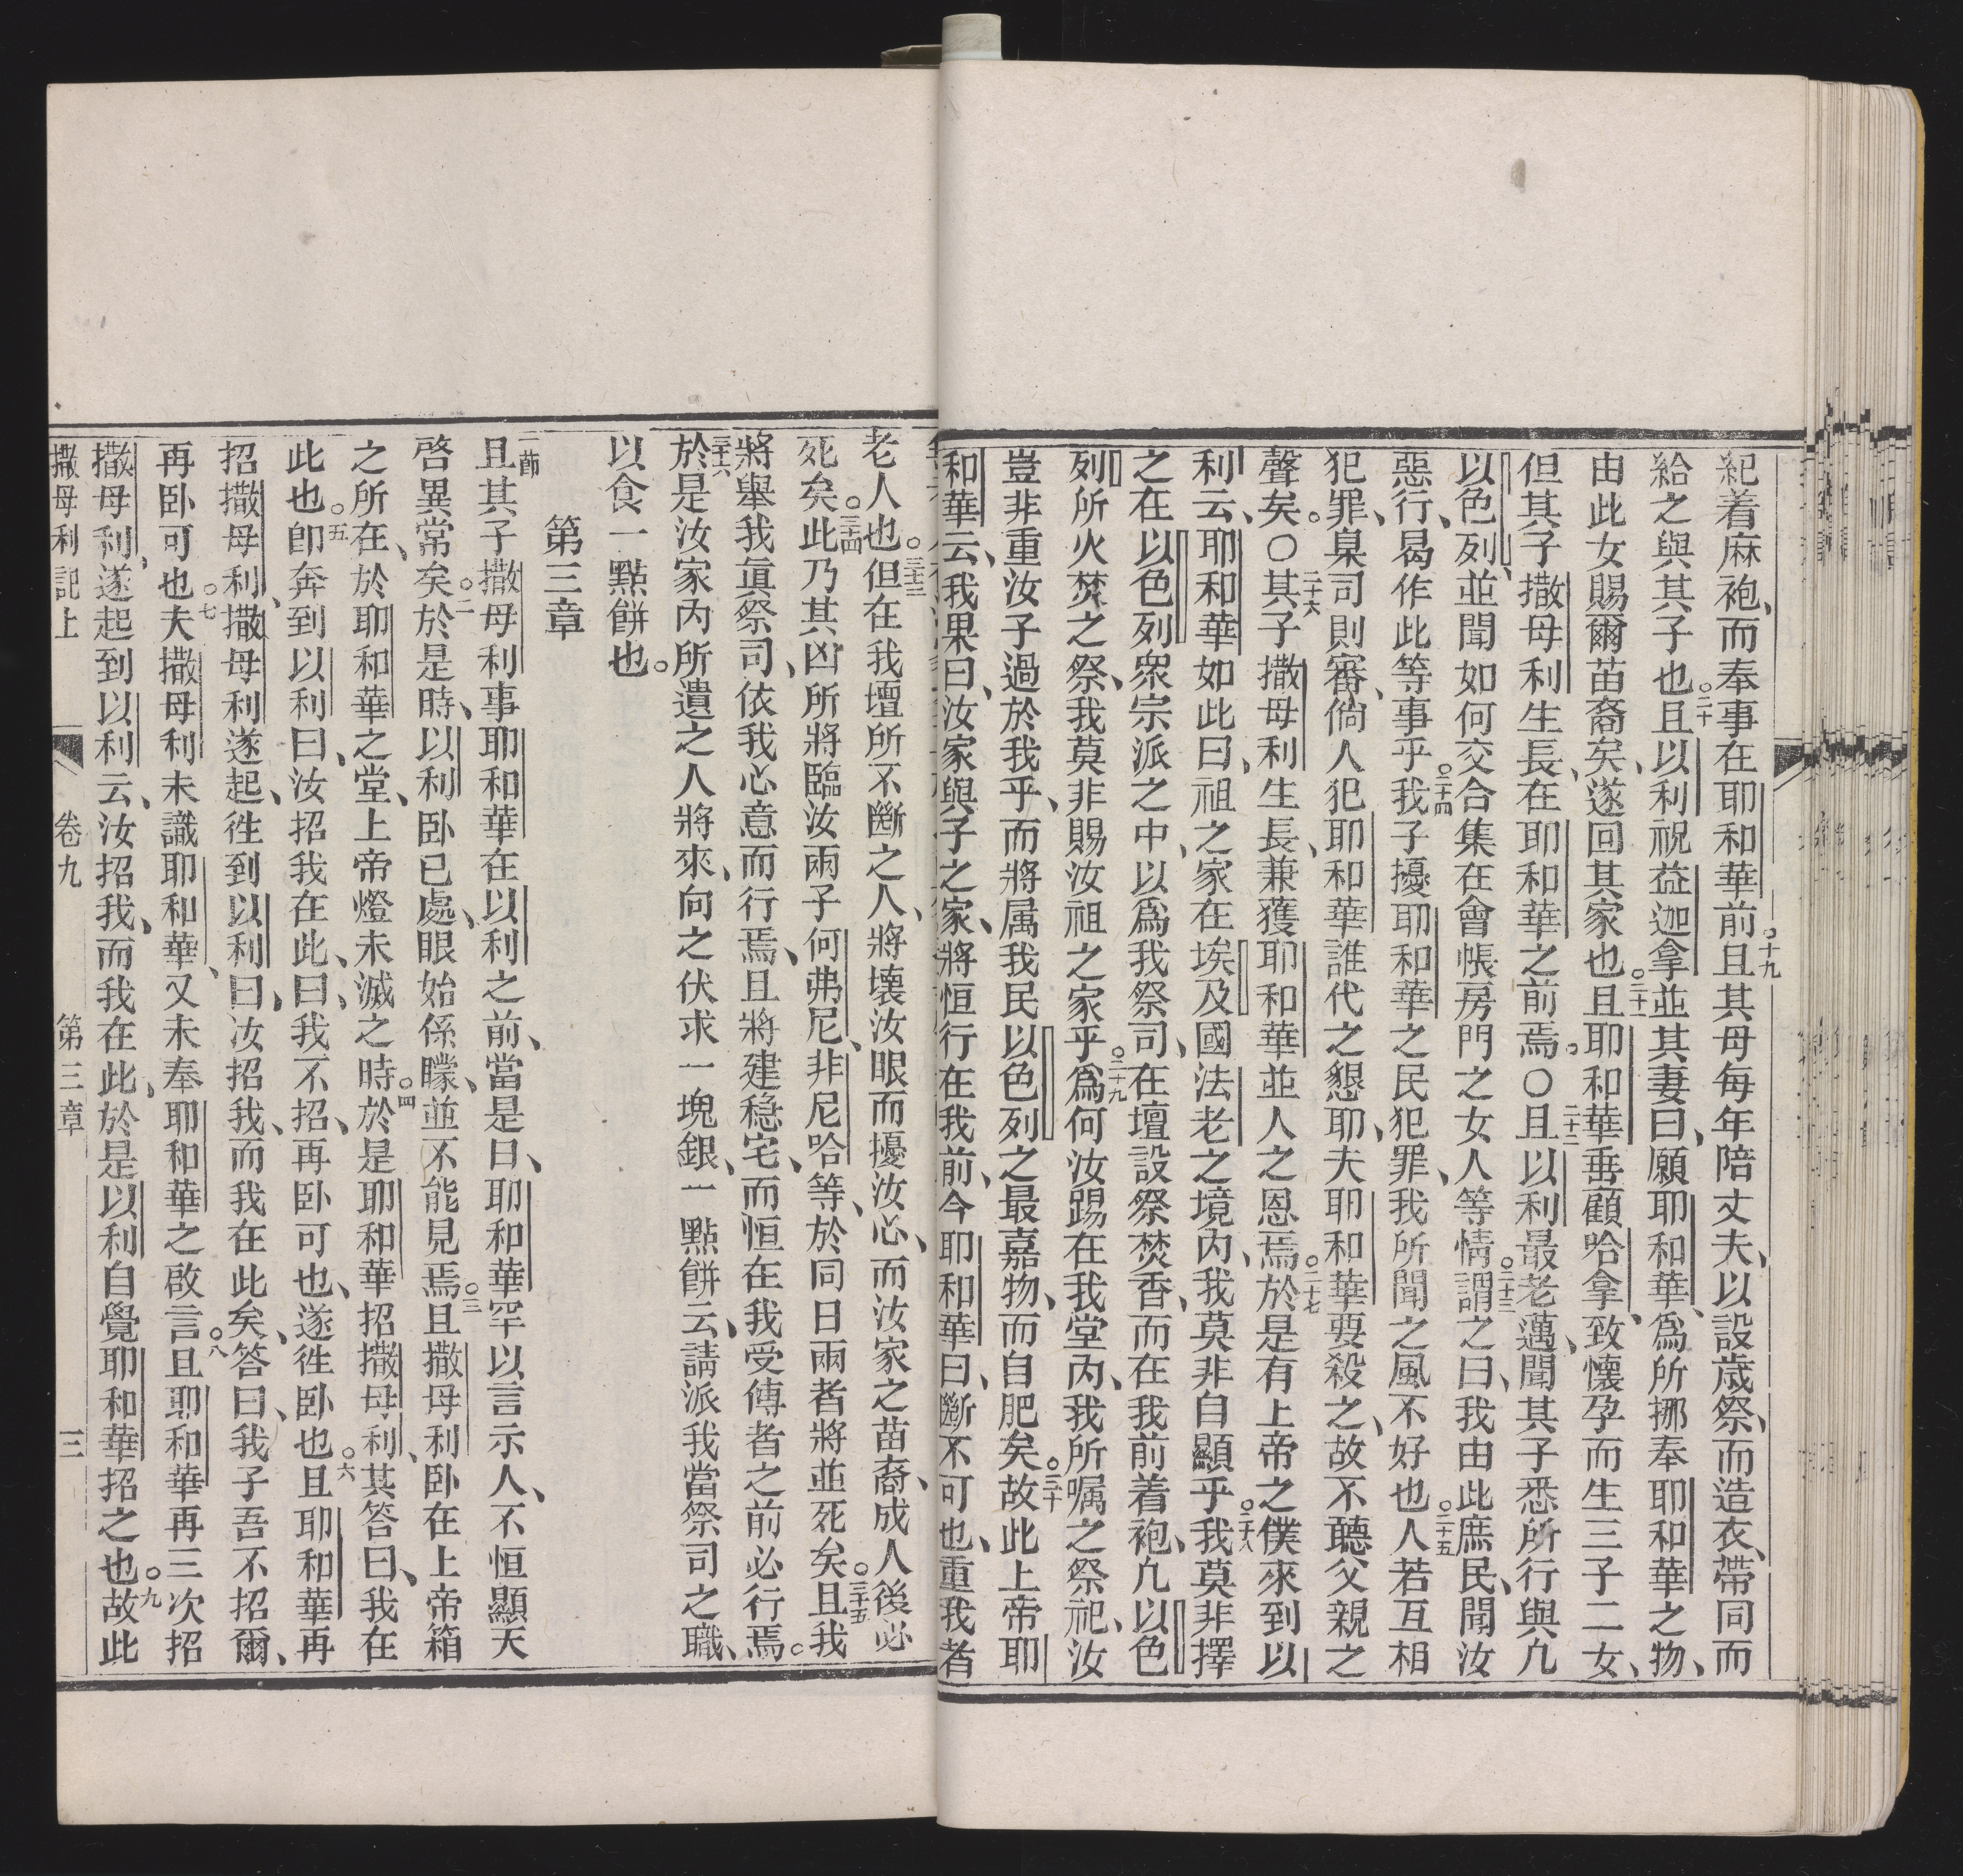 紀着麻袍、而奉事在耶和華前○十九且其母每年陪丈夫、以設歲祭、而造衣、帶同而
給之與其子也○二十且以利祝益迦拿並其妻曰、願耶和華、爲所挪奉耶和華之物、
由此女賜爾苗裔矣、遂回其家也○二十一且耶和華垂顧哈拿、致懷孕而生三子二女、
但其子撒母利生長、在耶和華之前焉。○二十二且以利最老邁、聞其子悉所行與凢
以色列、並聞如何交合集在會帳房門之女人等情○二十三謂之曰、我由此庶民、聞汝
惡行、曷作此等事乎○二十四我子擾耶和華之民犯罪、我所聞之風不好也○二十五人若互相
犯罪、臬司則審、倘人犯耶和華誰代之懇耶、夫耶和華要殺之、故不聽父親之
聲矣。○二十六其子撒母利生長、兼獲耶和華並人之恩焉○二十七於是有上帝之僕來到以
利云、耶和華如此曰、祖之家在埃及國法老之境內、我莫非自顯乎○二十八我莫非擇
之在以色列衆宗派之中、以爲我祭司、在壇設祭焚香、而在我前着袍、凢以色
列所火焚之祭、我莫非賜汝祖之家乎○二十九爲何汝踢在我堂內、我所嘱之祭祀、汝
豈非重汝子過於我乎、而將属我民以色列之最嘉物、而自肥矣○三十故此上帝耶
和華云、我果曰、汝家與子之家、將恒行在我前、今耶和華曰、斷不可也、重我者
老人也○三十三但在我壇所不斷之人、將壞汝眼而擾汝心、而汝家之苗裔、成人後必
死矣○三十四此乃其凶所將臨汝兩子何弗尼、非尼哈等、於同日兩者將並死矣○三十五且我
將舉我眞祭司、依我心意而行焉、且將建穩宅、而恒在我受傅者之前必行焉。
三十六於是汝家內所遺之人將來、向之伏求一塊銀、一點餅云、請派我當祭司之職、
以食一點餅也。
第三章
一節且其子撒母利事耶和華在以利之前、當是日、耶和華罕以言示人、不恒顯天
啓異常矣○二於是時、以利卧已處、眼始係矇、並不能見焉○三且撒母利卧在上帝箱
之所在、於耶和華之堂、上帝燈未滅之時○四於是耶和華招撒母利、其答曰、我在
此也○五卽奔到以利曰、汝招我在此、曰、我不招、再卧可也、遂徃卧也○六且耶和華再
招撒母利、撒母利遂起、徃到以利曰、汝招我、而我在此矣、答曰、我子吾不招爾、
再卧可也○七夫撒母利未識耶和華、又未奉耶和華之啟言○八且耶和華再三次招
撒母利、遂起到以利云、汝招我、而我在此、於是以利自覺耶和華招之也○九故此
撒母利記上 卷九 第三章 三